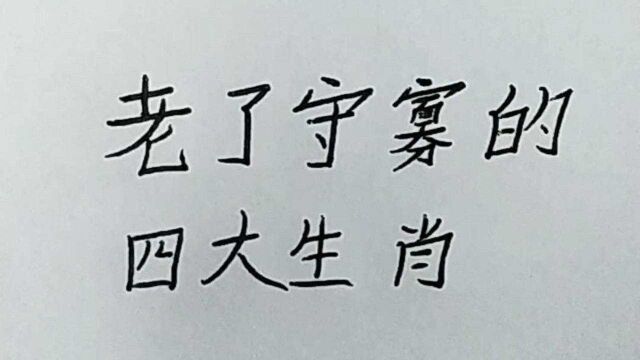 老了守寡的
四大生肖